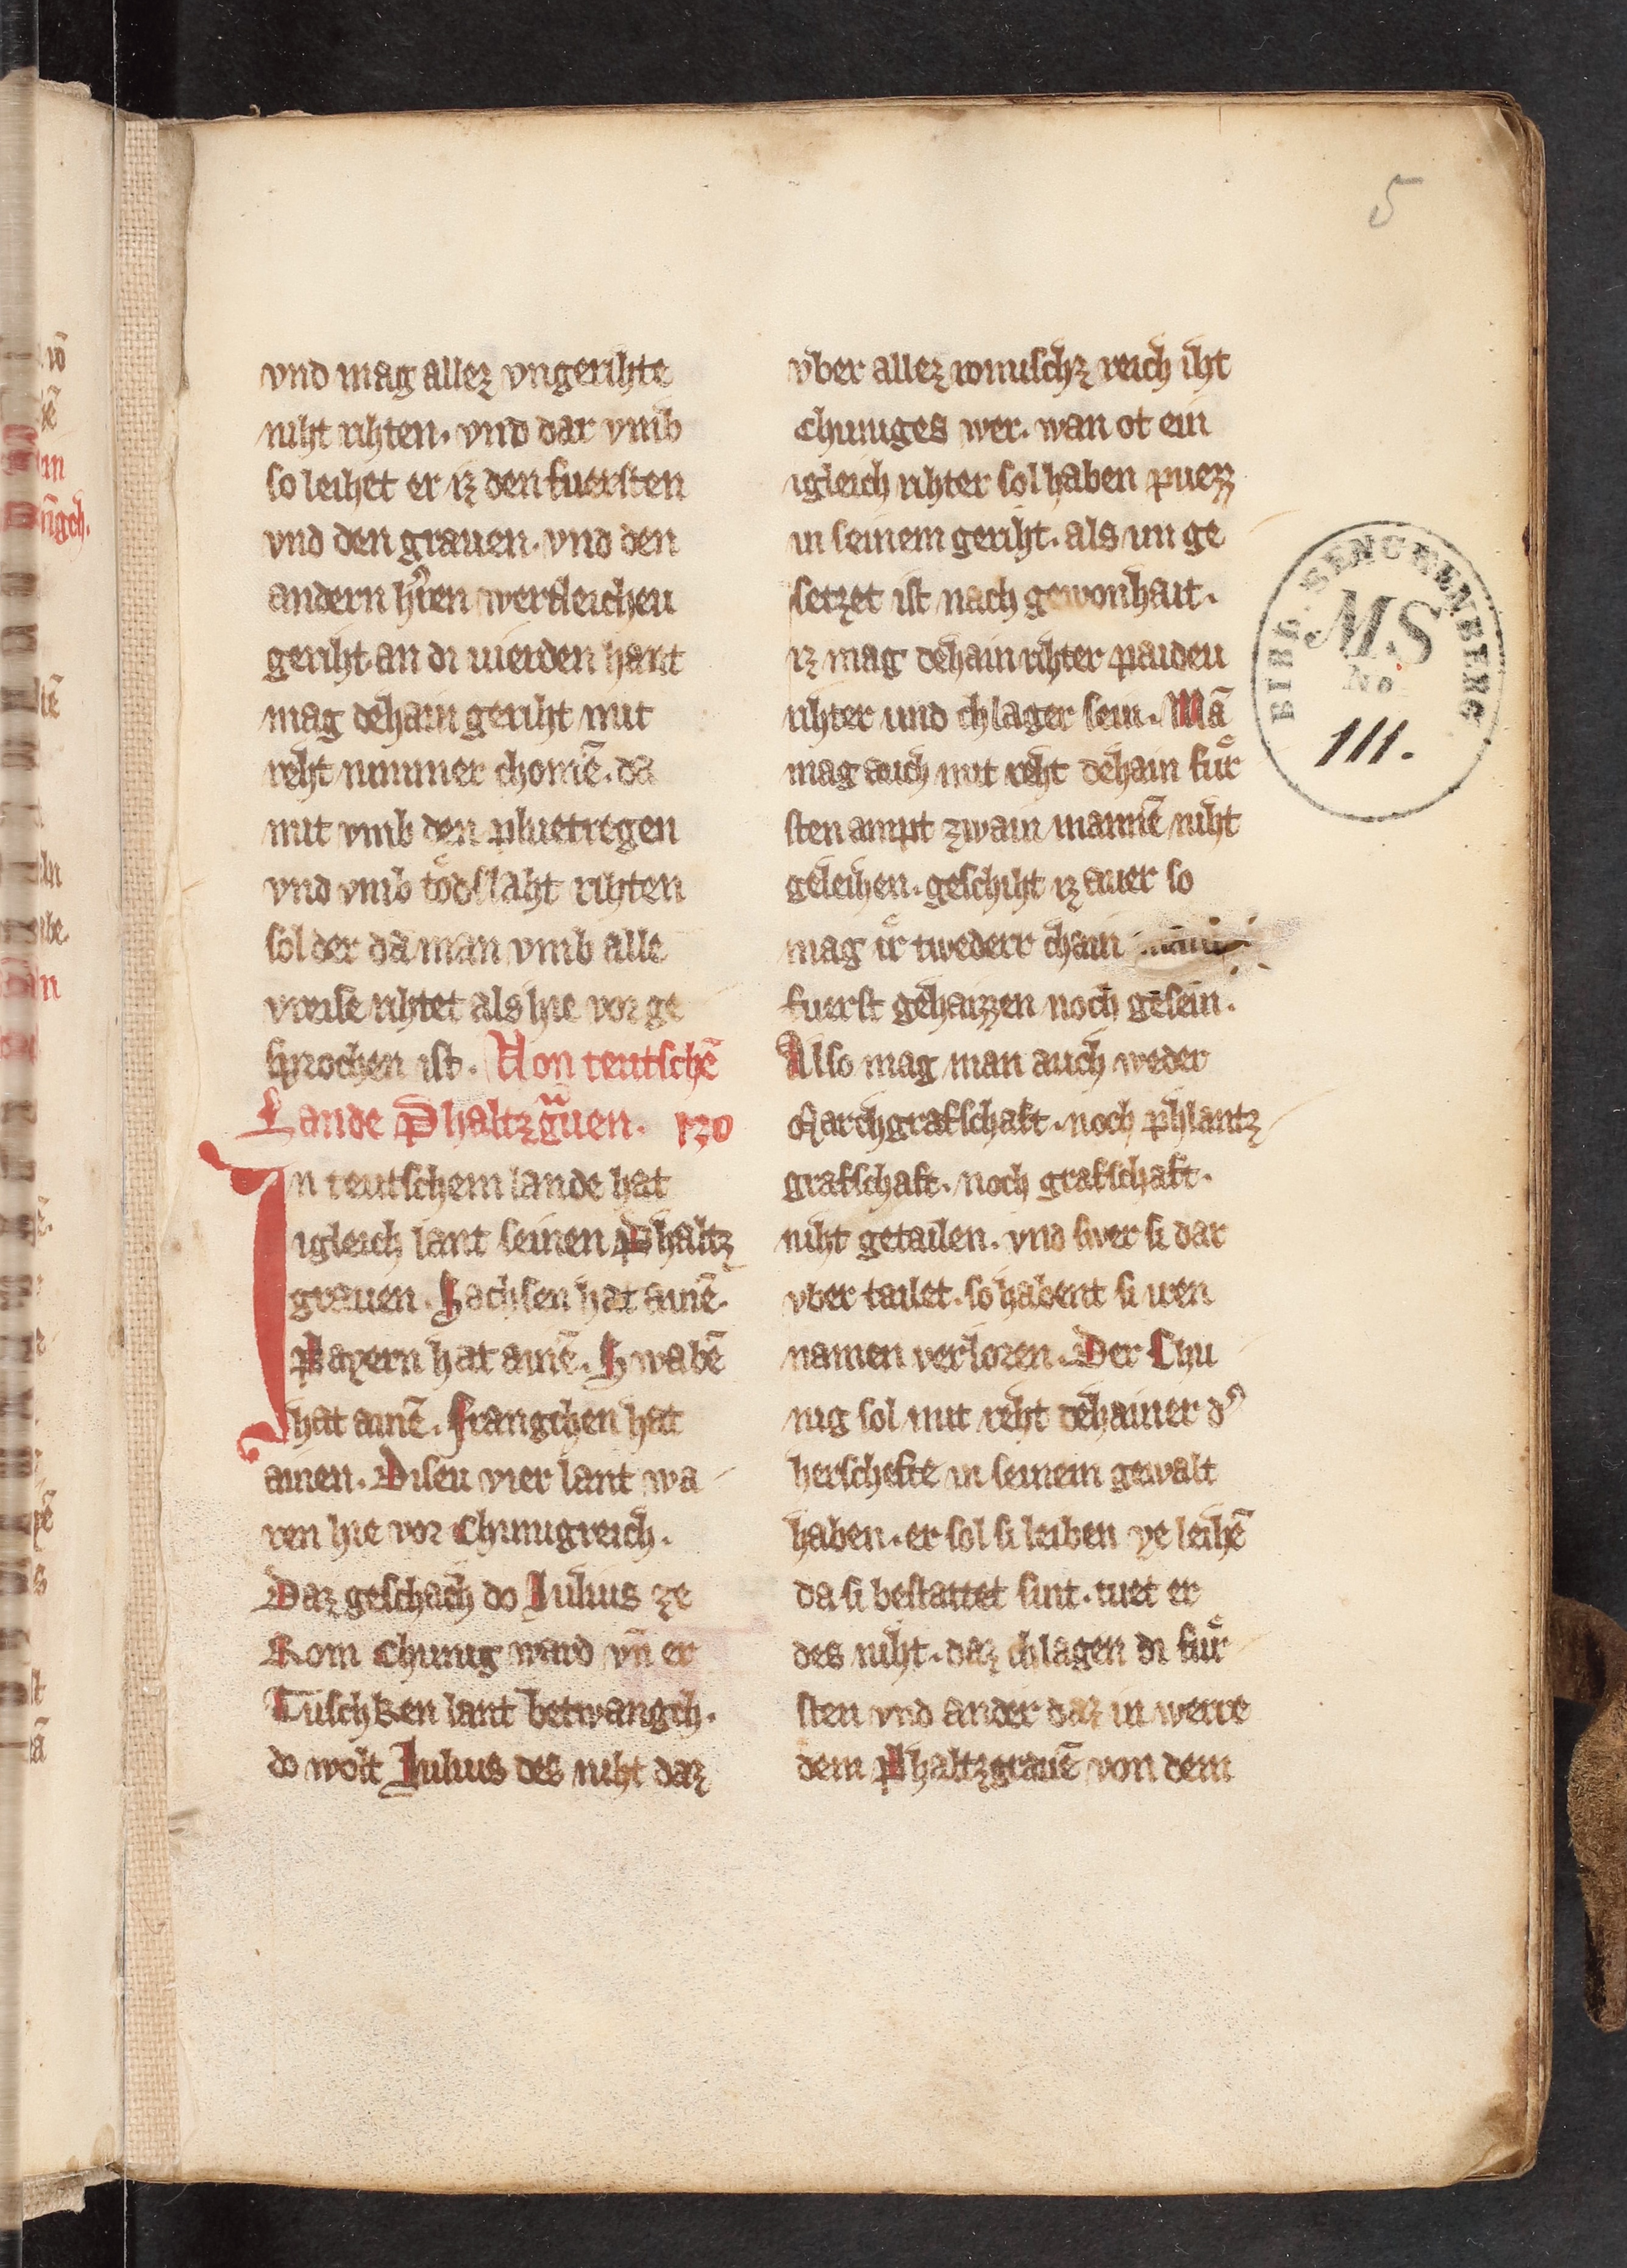 5
vnd mag allez vngerihte
niht rihten. vnd dar vmb
so leihet er iz den fuersten
vnd den grauen. vnd den
andern hr̄en wertleichen
geriht. an di uierden hant
mag dehain geriht mit
reht nimmer chomē. da
mit vmb den pluetregen
vnd vmb todslaht rihten
sol der da man vmb alle
vreise rihtet als hie vor ge
sprochen ist. Von teutschē
Lande Phaltzgͣuen. 120
In teutschem lande hat
igleich lant seinen Phaltz
grauen. Sachsen hat ainē.
Payern hat ainē. Swabē
hat ainē. Frangchen hat
ainen. Diseu vier lant wa
ren hie vor Chunigreich.
Daz geschach do Julius ze
Rom Chunig ward vn̄ er
Tuschken lant betwangch.
do wolt Julius des niht daz
vber allez romischz reich iht
Chuniges wer. wan ot ein
igleich rihter sol haben puezz
in seinem geriht. als im ge
setzet ist nach gewonhait.
iz mag dehain rihter paideu
rihter und chlager sein. Mā
mag auch mit reht dehain fuͤr
sten ampt zwain mannē niht
geleihen. geschiht iz auer so
mag ir twederr chain
fuerst gehaizzen noch gesein.
Also mag man auch weder
Marchgrafschaft. noch phlantz
grafschaft. noch grafschaft.
niht getailen. vnd swer si dar
vber tailet. so habent si iren
namen verloren. Der Chu
nig sol mit reht dehainer d̛
herschefte in seinem gewalt
haben. er sol si leiben ye leihē
da si bestattet sint. tuet er
des niht. daz chlagen di fuͤr
sten vnd ander daz in werre
dem Phaltzgrauē von dem
BIBL. SENCKENBERG
MS
No
111.